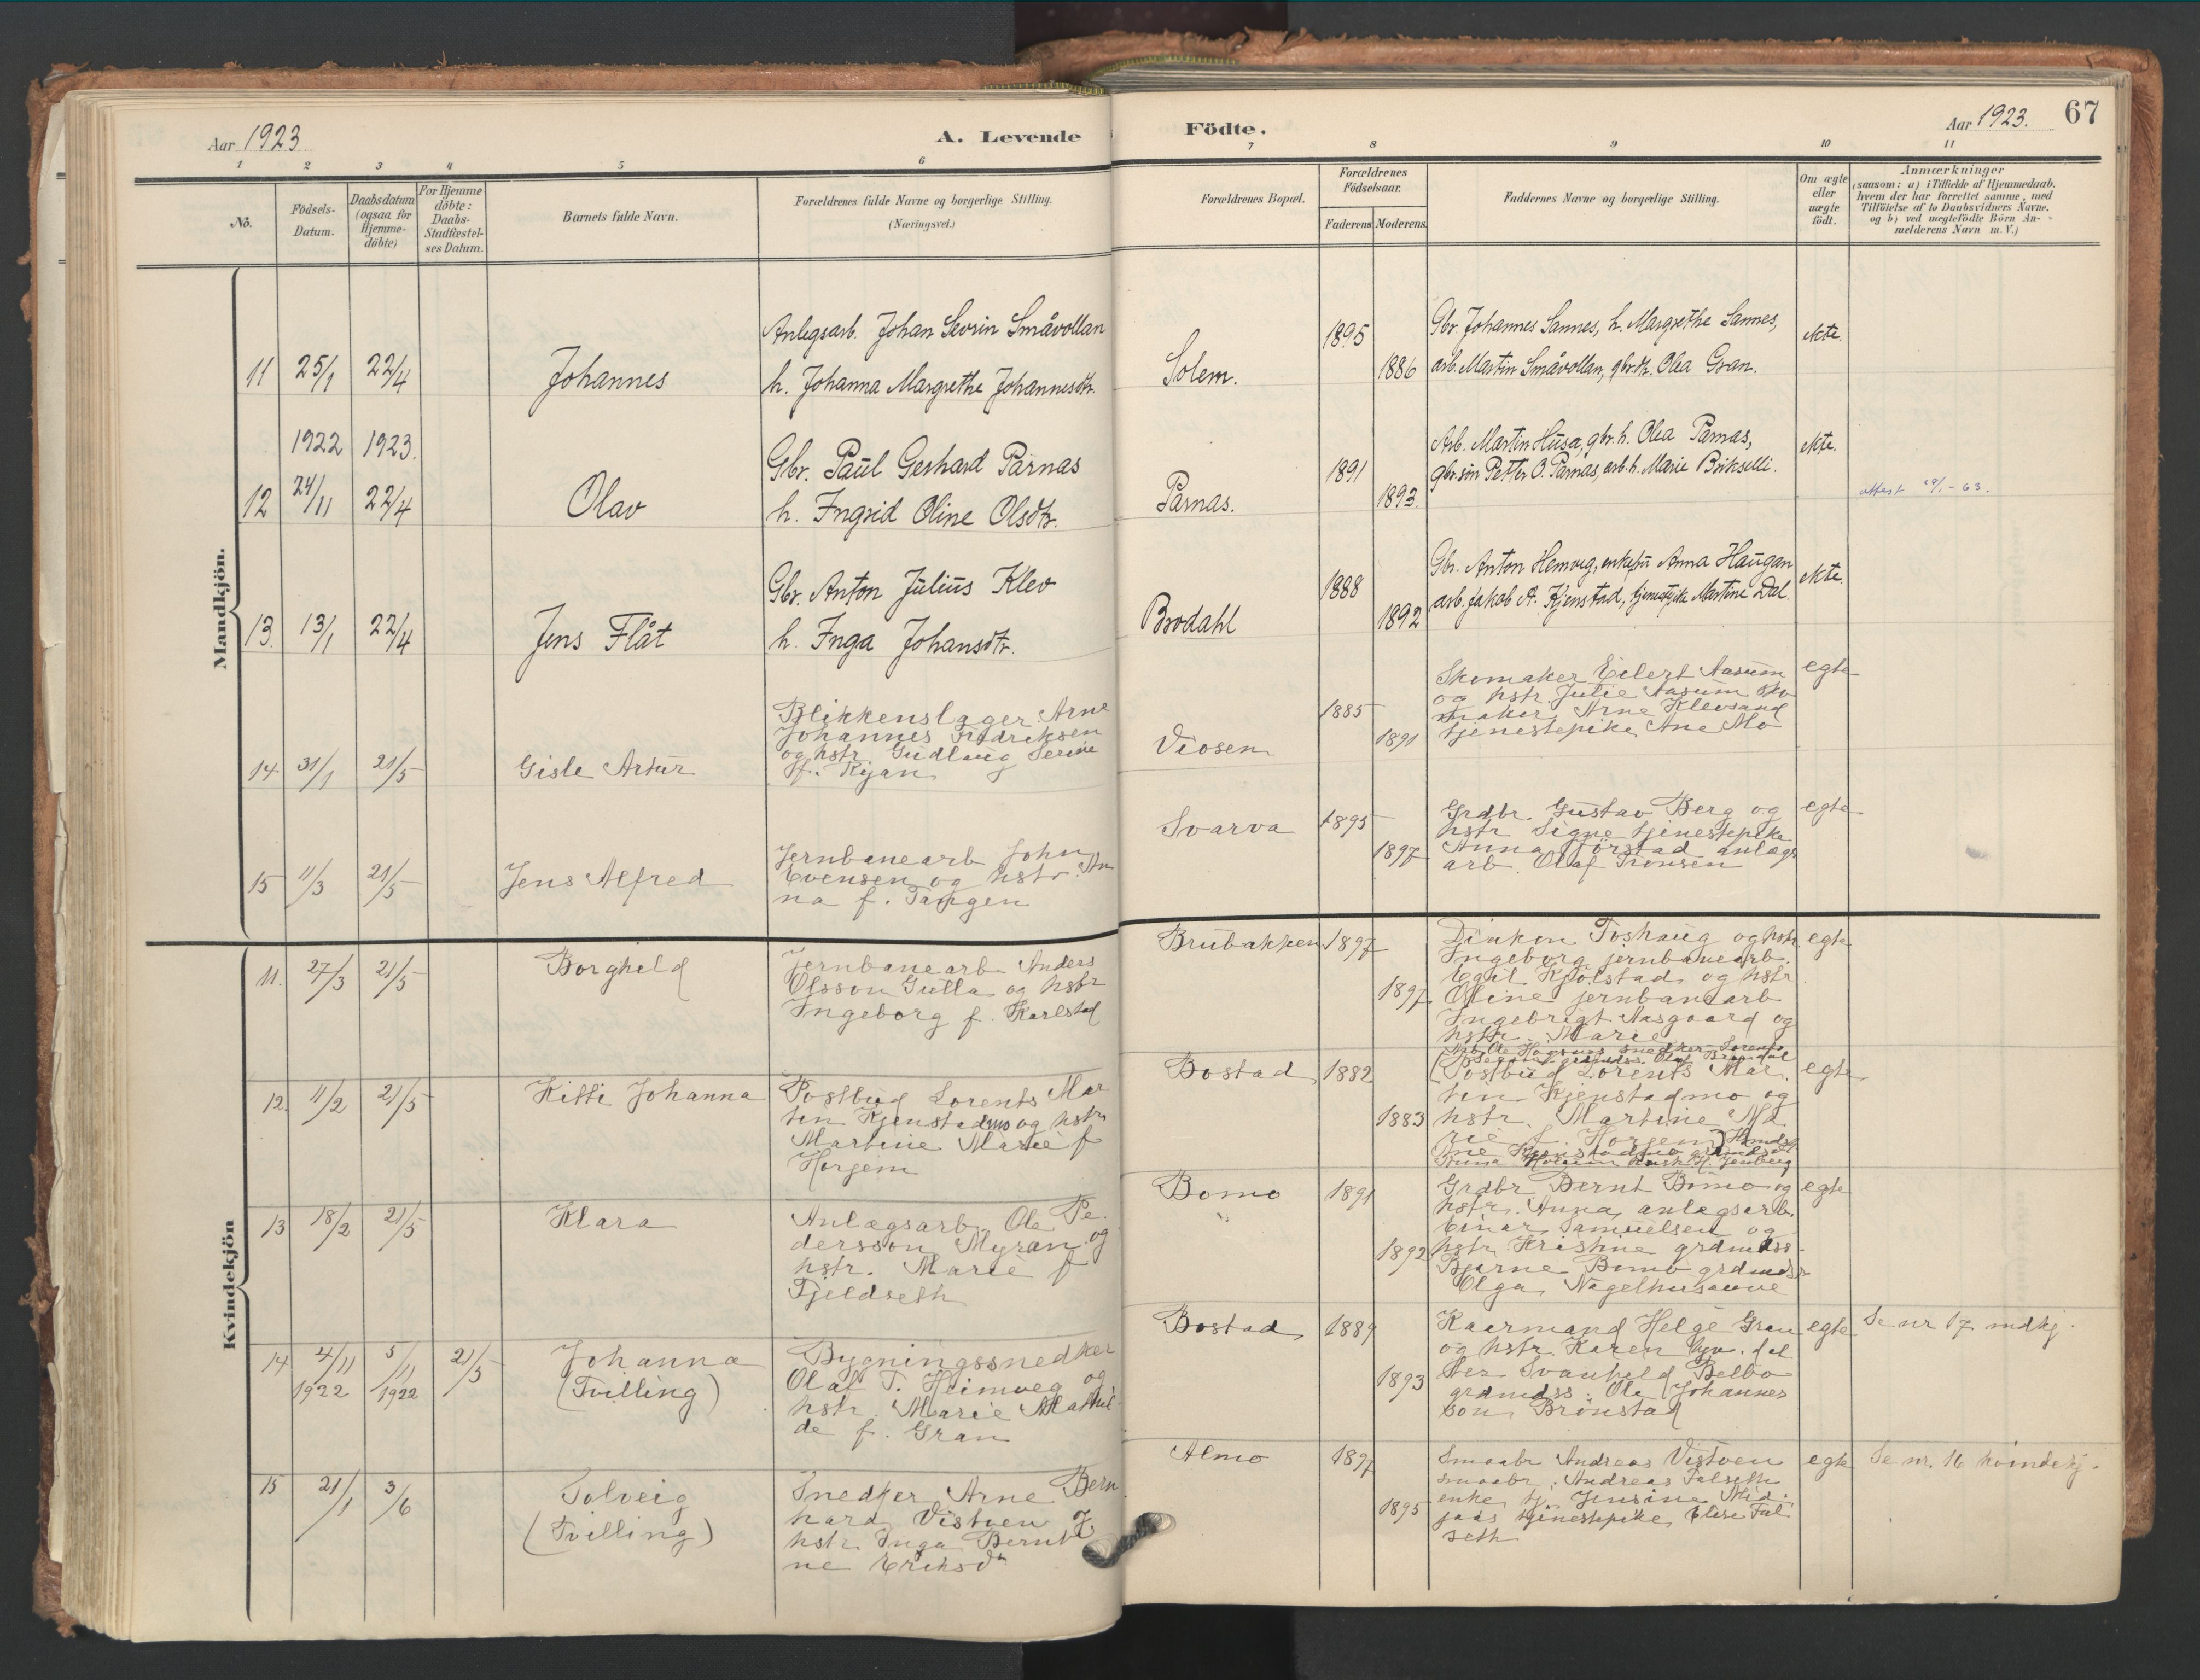 Aar 1923
A. Levende
Födte.
Aar 1923.
67
1 2 3 4 5 6 7 8 9 10 11
No.
Födsels-
Datum.
Daabsdatum
(ogsaa for
Hjemme-
döbte)
For Hjemme
döbte:
Daabs-
Stadfæstel-
ses Datum.
Barnets fulde Navn.
Forældrenes fulde Navne og borgerlige Stilling.
(Næringsvei.)
Forældrenes Bopæl.
Forældrenes
Födselsaar.
Faderens Moderens
Faddernes Navne og borgerlige Stilling.
Om ægte
eller
uægte
födt.
Anmærkninger
(saasom: a) i Tilfælde af Hjemmedaab,
hvem der har forrettet samme, med
Tilföielse af to Daabsvidners Navne.
og b) ved uægtefödte Börn An-
melderens Navn m.V.)
Mandkjön.
11 25/1 22/4
Johannes
Anlegsarb. Johan Sevrin Småvollan
h. Johanna Margrethe Johannesdtr.
Solem.
1895
1886
Gbr. Johannes Sannes, h. Margrethe Sannes,
arb. Martin Småvollan, gbrdtr. Olea Gran.
ekte.
1922 1923.
12 24/11 22/4
Olav
Gbr. Paul Gerhard Parnas
h. Ingrid Oline Olsdtr.
Parnas.
1891
1893.
Arb. Martin Husa, gbr. h. Olea Parnas,
gbr.sön Petter O. Parnas, arb. h. Marie Brikselli.
ekte.
attest -63.
13. 13/1 22/4
Jens Flåt
Gbr. Anton Julius Klev
h. Inga Johansdtr.
Brodahl
1888
1892
Gbr. Anton Hemveg, enkefru Anna Haugan
arb. Jakob A. Kjenstad, tjenestpike Martine Dal.
ekte.
14 31/1 21/5
Gisle Artur
Blikkenslager Arne
Johannes Fredriksen
og hstr Gudlaug Serine
f. Kjan
Viosen
1885
1891
Skomaker Eilert Aasum
og hstr Julie Aasum sko
maker Arne Klevsand
tjenestepike Ane Mo
egte
15 11/3 21/5
Jens Alfred
Jernbanearb John
Evensen og hstr An
na f. Tangen
Svarva
1895
1897
Grdbr. Gustav Berg og
hstr Signe tjenestepike
Anna Fjörstad anlægs
arb. Olaf Tronsen
egte
Kvindekjön
11. 27/3 21/5
Borghild
Jernbanearb Anders
Olsson Gulla og hstr
Ingeborg f. Karlstad
Brubakken
1897
1897
Foshaug og hstr
Ingeborg jernbanearb.
Egil Kjölstad og hstr
Oline jernbanearb
Ingebrigt Aasgaard og
hstr. Marie
egte
12. 11/2 21/5
Kitti Johanna
Postbud Lorents Mar
tin Kjenstadmo og hstr
Martine Marie f
Horjem
Bostad
1882
1883
(Postbud Lorents Mar
tin Kjenstadmo og
hstr. Martine Ma
rie f. Horjem)
egte
13 18/2 21/5
Klara
Anlægsarb. Ole Pe
dersson Myran og
hstr. Marie f
Fjeldseth
Bomo
1891
1892
Grdbr Bernt Bomo og
hstr. Anna anlægsarb.
Einar Samuelsen og
hstr Kristine grdmdss
Bjarne Bomo grdmdsd
Olga Nagelhusaune
egte
14 4/11 1922 5/11 1922 21/5
Johanna
(Tvilling)
Bygningssnedker
Olaf T. Heimveg og
hstr. Marie Mathil
de f. Gran
Bostad
1889
1893
Kaarmand Helge Gran
og hstr Karen
Svanhild Belbo
grdmdss. Ole Johannes
son Brönstad
egte
Se nr 17 mdkj.
15 21/1 3/6
Solveig
(Tvilling)
Snedker Arne Bern
hard Vistven og
hstr Inga Bernti
ne Eriksdtr
Almo
1897
1895
Smaabr Andreas Vistven
smaabr. Andreas Falseth
enke Jensine Mid
jaas tjenestepike Elise Fal
seth
egte
Se nr. 16 kvindekj.